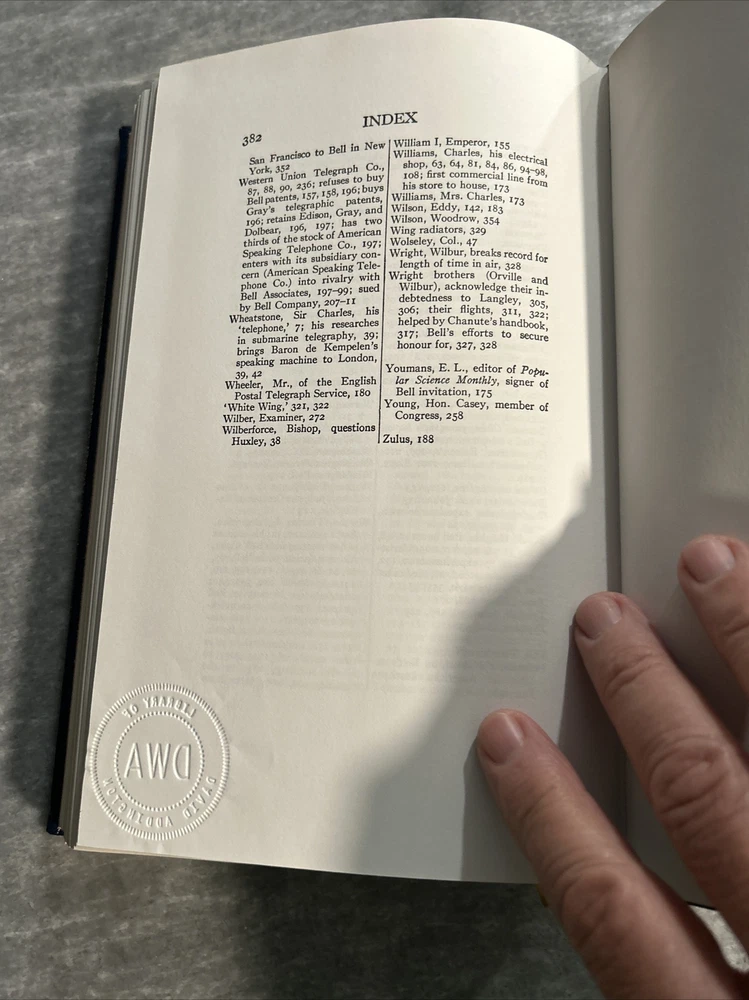 382
INDEX
San Francisco to Bell in New
York, 352
Western Union Telegraph Co.,
87, 88, 90, 236; refuses to buy
Bell patents, 157, 158, 196; buys
Gray's telegraphic patents,
196; retains Edison, Gray, and
Dolbear, 196, 197; has two
thirds of the stock of American
Speaking Telephone Co., 197;
enters with its subsidiary con-
cern (American Speaking Tele-
phone Co.) into rivalry with
Bell Associates, 197-99; sued
by Bell Company, 207-11
Wheatstone, Sir Charles, his
'telephone,' 7; his researches
in submarine telegraphy, 39;
brings Baron de Kempelen's
speaking machine to London,
39, 42
Wheeler, Mr., of the English
Postal Telegraph Service, 180
'White Wing,' 321, 322
Wilber, Examiner, 272
Wilberforce, Bishop, questions
Huxley, 38
William I, Emperor, 155
Williams, Charles, his electrical
shop, 63, 64, 81, 84, 86, 94-98,
108; first commercial line from
his store to house, 173
Williams, Mrs. Charles, 173
Wilson, Eddy, 142, 183
Wilson, Woodrow, 354
Wing radiators, 329
Wolseley, Col., 47
Wright, Wilbur, breaks record for
length of time in air, 328
Wright brothers (Orville and
Wilbur), acknowledge their in-
debtedness to Langley, 305,
306; their flights, 311, 322;
helped by Chanute's handbook,
317; Bell's efforts to secure
honour for, 327, 328
Youmans, E. L., editor of Popu-
lar Science Monthly, signer of
Bell invitation, 175
Young, Hon. Casey, member of
Congress, 258
Zulus, 188
LIBRARY OF
DWA
DAVID ADDINGTON